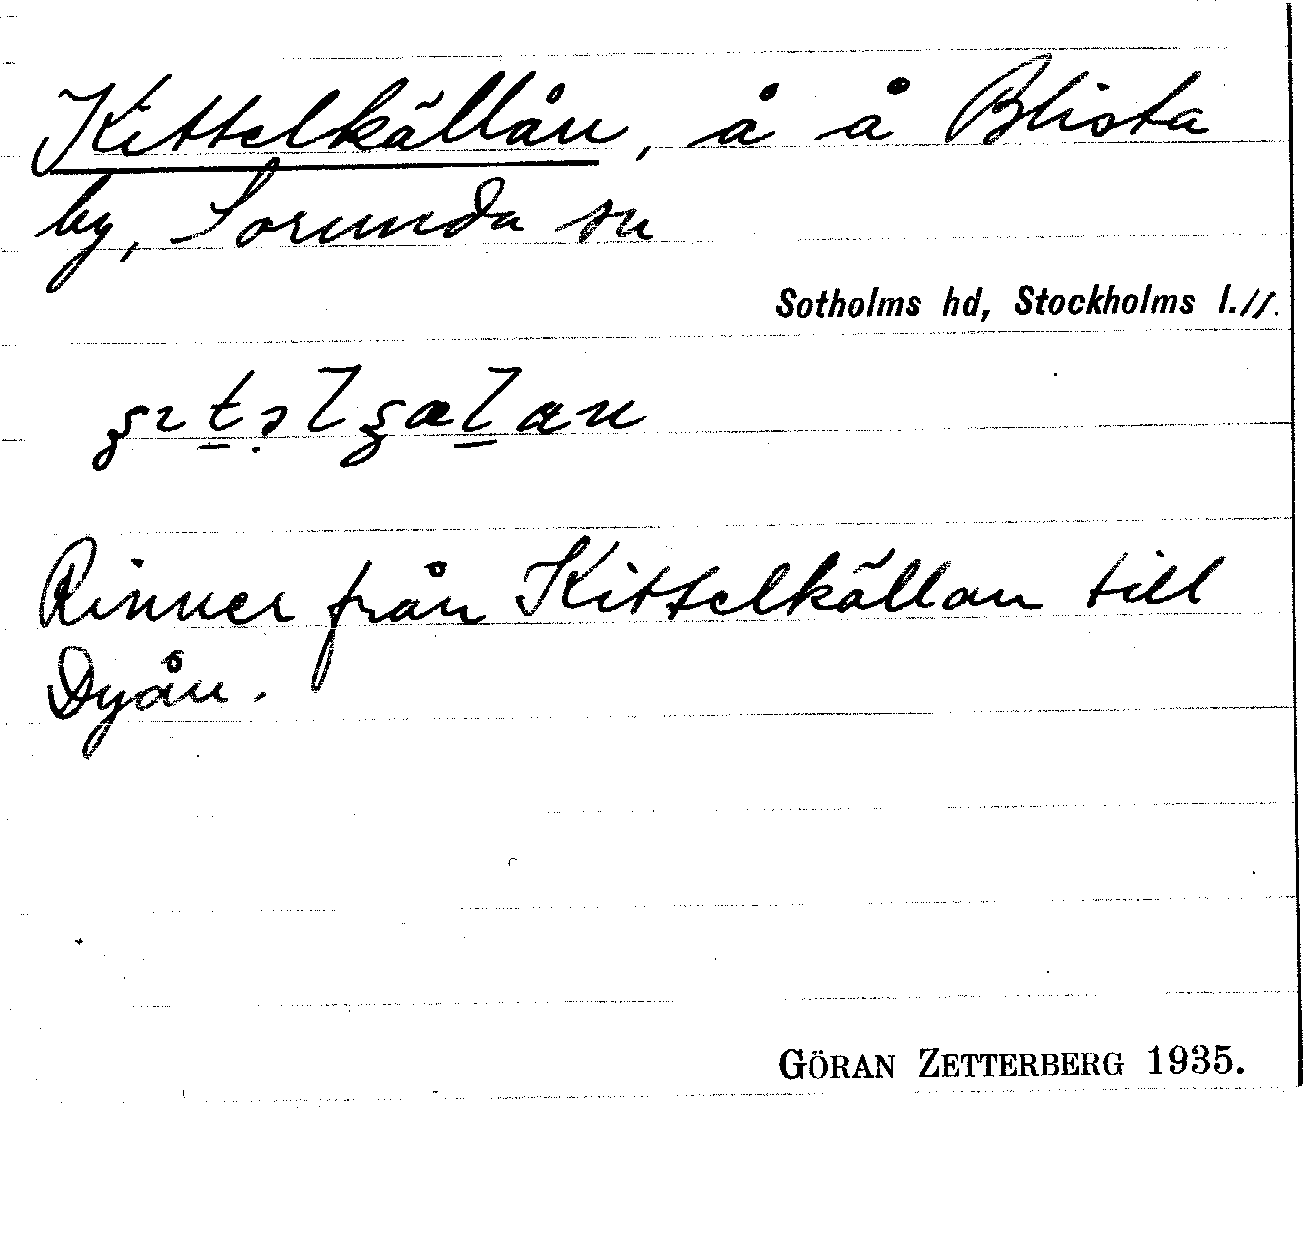 Kittelkällån, å å Blista
by, Sorunda sn
Sotholms hd, Stockholms l.//.
Rinner från Kittelkällan till
Dyån.
GÖRAN ZETTERBERG 1935.